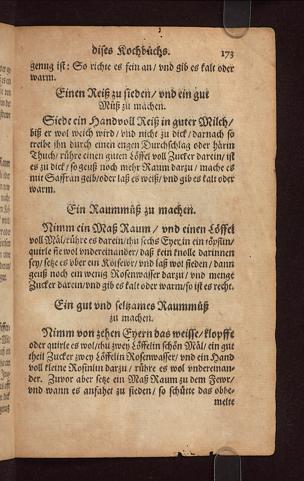 dises Kochbüchs. 173
genug ist: So richte es fein an/ vnd gib es kalt oder
warm.
Einen Reiß zu sieden/ vnd ein gut
Müß zu machen.
Siede ein Handvoll Reiß in guter Milch/
biß er wol weich wird/ vnd nicht zu dick/ darnach so
treibe ihn durch einen engen Durchschlag oder härin
Thuch/ rühre einen guten Löffel voll Zucker darein/ ist
es zu dick/ so geuß noch mehr Raum darzu/ mache es
mit Saffran gelb/oder laß es weiß/ vnd gib es kalt oder
warm.
Ein Raummüß zu machen.
Nimm ein Maß Raum/ vnd einen Löffel
voll Mäl/ rühre es darein/thu sechs Eyer in ein
quirle sie wol vndereinander/ daß kein knolle darinnen
sey/ setze es vber ein vnd laß wol sieden/ dann
geuß noch ein wenig Rosenwasser darzu/ vnd menge
Zucker darein/vnd gib es kalt oder warm/so ist es recht.
Ein gut vnd seltzames Raummüß
zu machen.
Nimm von zehen Eyern das weisse/ klopffe
oder quirle es wol/thu zwey Löffelin schön Mäl/ ein gut
theil Zucker zwey Löffelin Rosenwasser/ vnd ein Hand
voll kleine Rosinlin darzu/ rühre es wol vndereinan-
der. Zuvor aber setze ein Maß Raum zu dem Fewr/
vnd wann es anfahet zu sieden/ so schütte das obbe-
melte